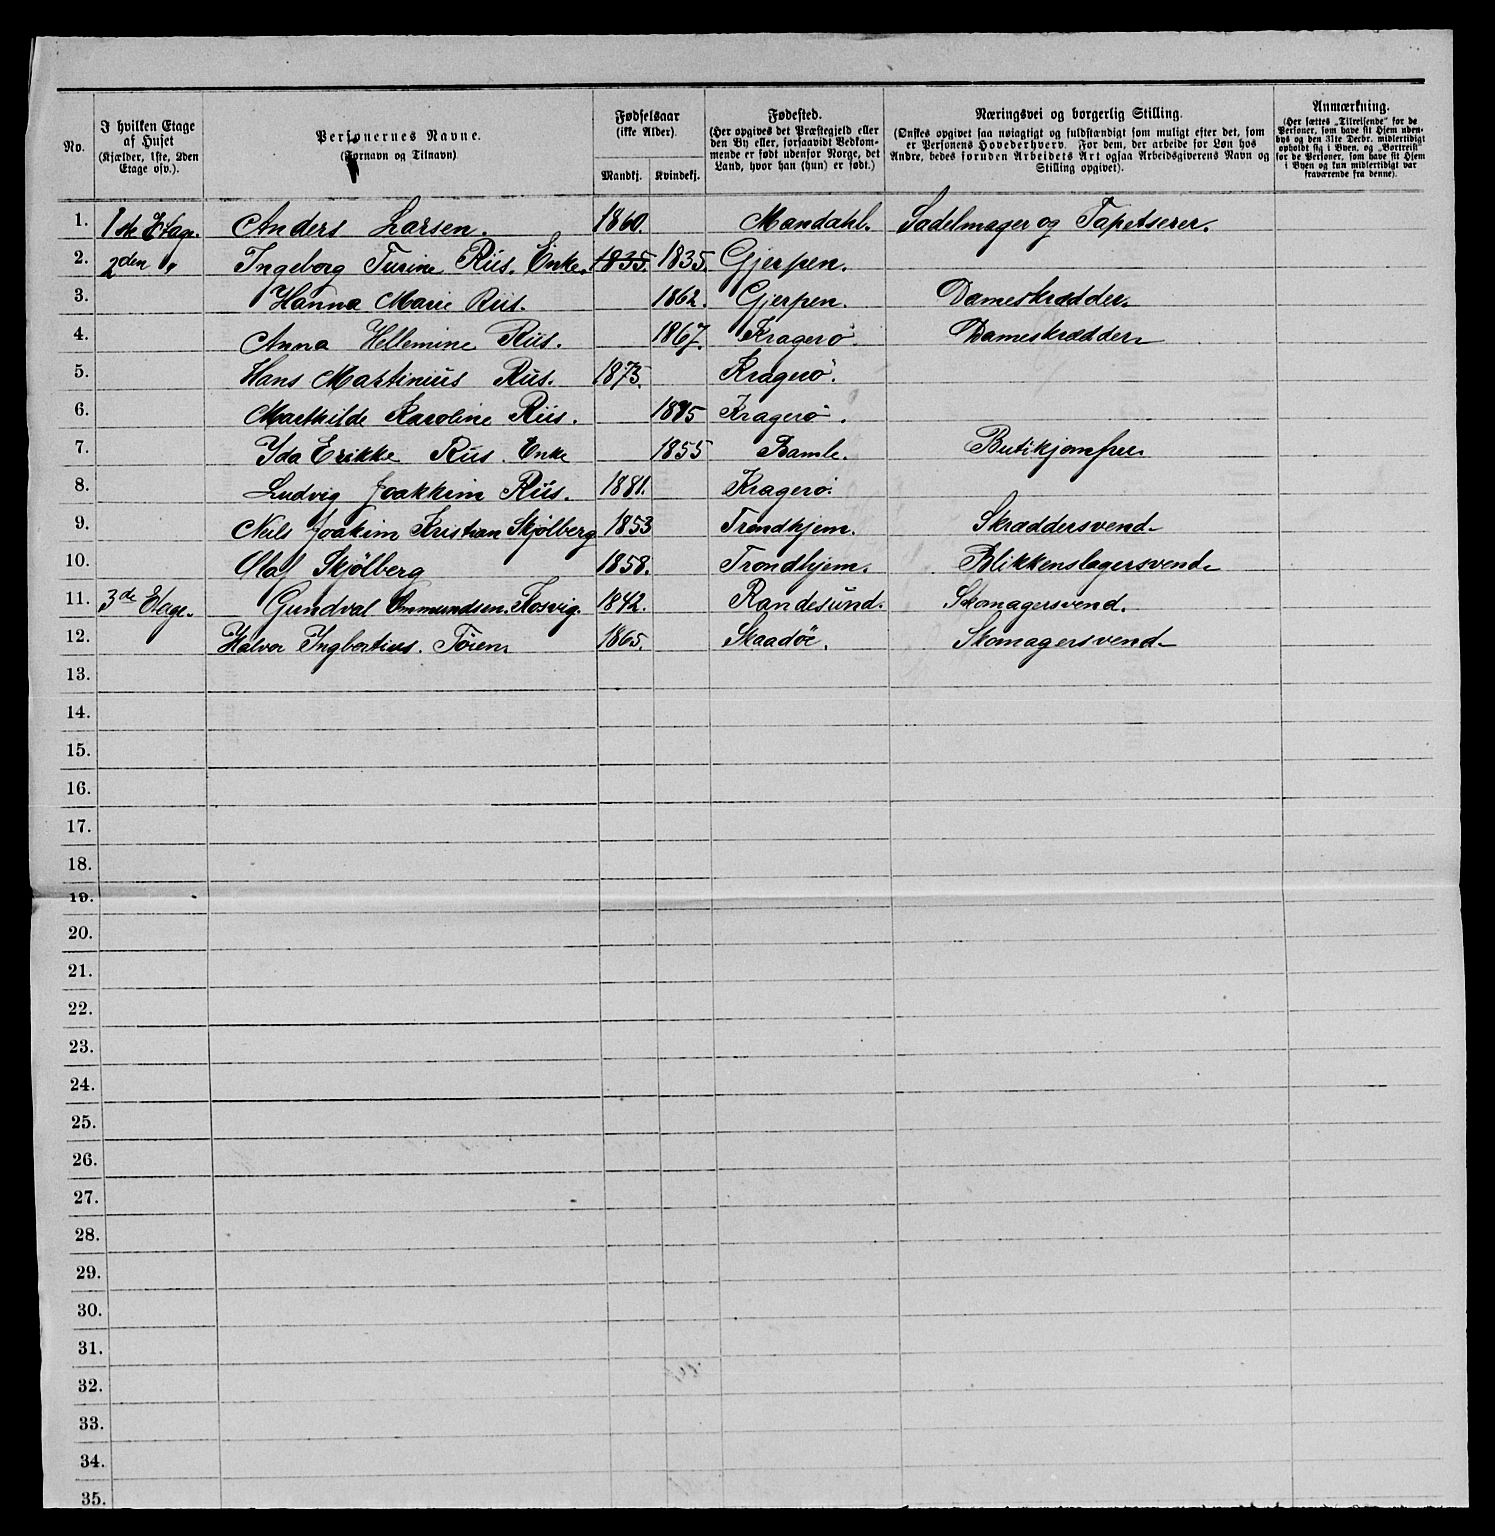 No. | I hvilken Etage af Huset (Kjælder, 1ste, 2den Etage osv.). | Personernes Navne. (Fornavn og Tilnavn) | Fødselsaar (ikke Alder) Mandkj. | Kvindekj. | Fødested. (Her opgives det Præstegjeld eller den By eller, forsaavidt Vedkommende er født udenfor Norge, det Land, hvor han (hun) er født.) | Næringsvei og borgerlig Stilling. (Ønskes opgivet saa nøiagtigt og fuldstændigt som muligt efter det, som er Personens Hovederhverv. For dem, der arbeide for Løn hos Andre, bedes foruden Arbeidets Art ogsaa Arbeidsgiverens Navn og Stilling opgivet). | Anmærkning. (Her sættes „Tilreisende“ for de Personer, som have sit Hjem udenbys og den 31te Decbr. midlertidigt opholdt sig i Byen, og „Bortreist“ for de Personer, som have sit Hjem i Byen og kun midlertidigt var fraværende fra denne).
1. 1ste Etage. Anders Larsen. 1860. Mandahl. Sadelmager og Tapetserer.
2. 2den " Ingeborg Turine Riis. Enke. 1835. 1835. Gjerpen.
3. Hanna Marie Riis. 1862. Gjerpen. Dameskrædder.
4. Anna Hellemine Riis. 1867. Kragerø Dameskrædder
5. Hans Martinius Riis. 1873. Kragerø.
6. Mathilde Karoline Riis. Kragerø.
7. Ida Erikke Riis. Enke 1855 Bamle. Butikjomfru
8. Ludvig Joakkim Riis. 1881. Kragerø.
9. Nils Joakim Kristian Skjølberg 1853 Trondhjem. Skræddersvend
10. Olaf Skjølberg 1858. Trondhjem. Blikkenslagersvend
11. 3de Etage. Gundval Ommundsen. Kosvig. 1842. Randesund. Skomagersvend.
12. Halvor Ingbertius. 1865. Skaadöe. Skomagersvend
13.
14.
15.
16.
17.
18.
19.
20.
21.
22.
23.
24.
25.
26.
27.
28.
29.
30.
31.
32.
33.
34.
35.